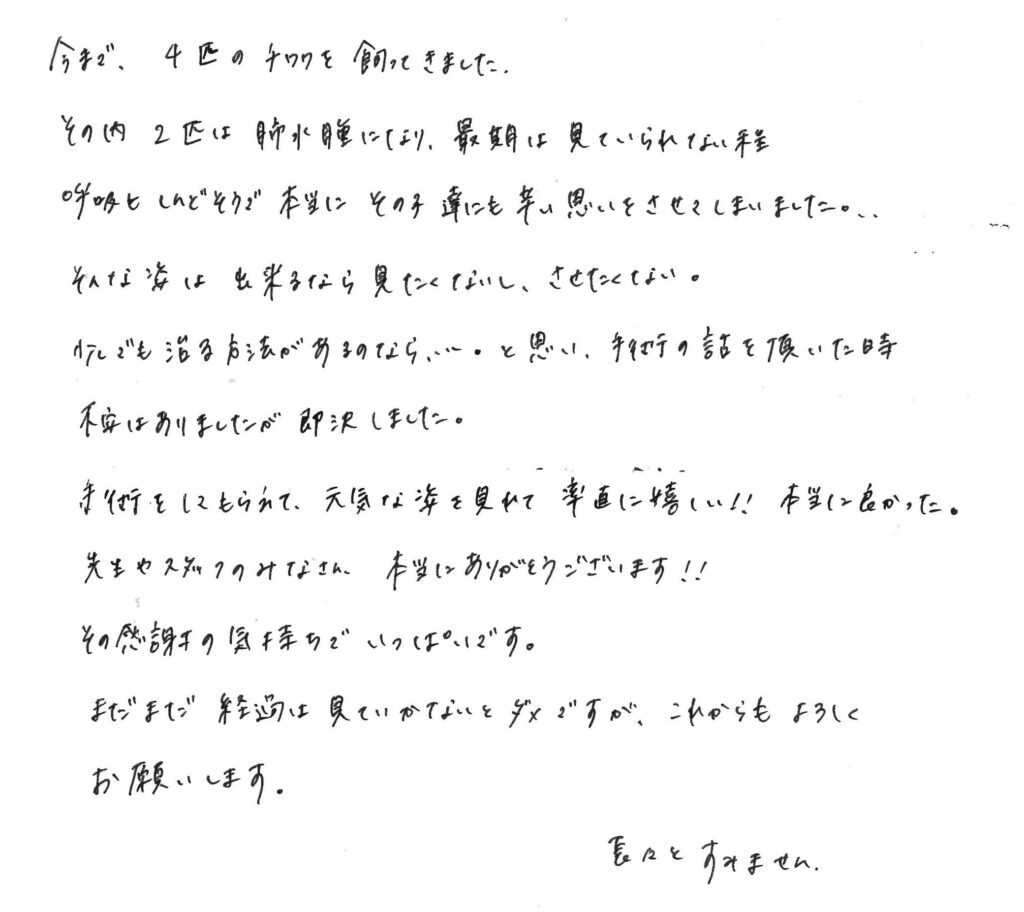 今まで、4匹のチワワを飼ってきました.
その内2匹は肺水腫になり、最期は見ていられない程
呼吸もしんどそうで本当にその子達にも辛い思いをさせてしまいました。..
そんな姿は出来るなら見たくないし、させたくない。
少しでも治る方法があるのなら、…。と思い、手術の話を頂いた時
不安はありましたが即決しました。
手術をしてもらえて、元気な姿を見れて率直に嬉しい!! 本当に良かった。
先生やスタッフのみなさん、本当にありがとうございます!!
その感謝の気持ちでいっぱいです。
まだまだ経過は見ていかないとダメですが、これからもよろしく
お願いします。
長々とすみません.